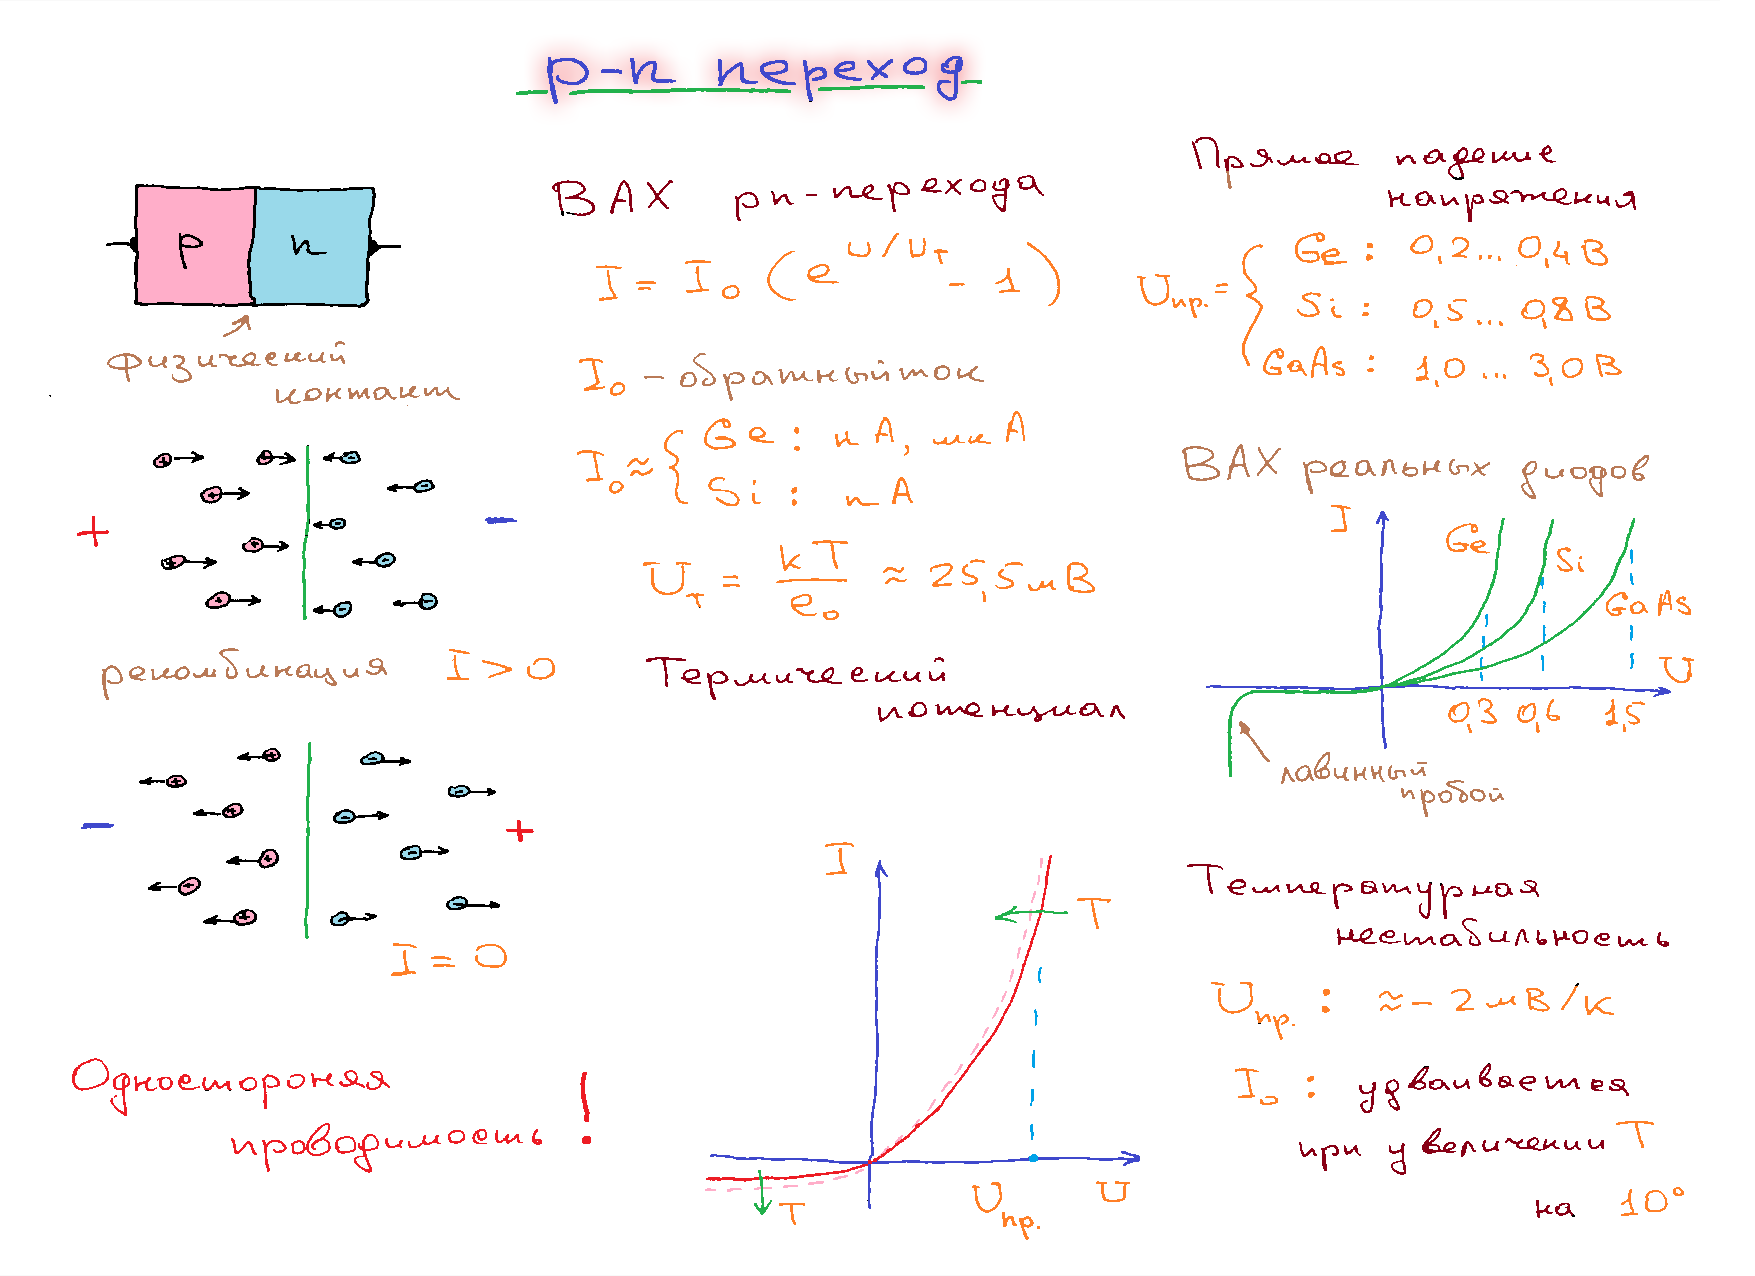 p-n переход
p n
физический
контакт
+ -
рекомбинация I > 0
- +
I = 0
Одностороняя
проводимость !
ВАХ pn-перехода
I = I₀ (e^{U/Uт} - 1)
I₀ - обратный ток
I₀ ≈ { Ge: нА, мкА
Si: пА
Uт = kT/e₀ ≈ 25,5 мВ
Термический
потенциал
I
T
T
Uпр.
U
Прямое падение
напряжения
Uпр. = { Ge: 0,2... 0,4 В
Si: 0,5... 0,8 В
GaAs: 1,0... 3,0 В
ВАХ реальных диодов
I
Ge
Si
GaAs
U
0,3 0,6 1,5
лавинный
пробой
Температурная
нестабильность
Uпр. : ≈ - 2 мВ/К
I₀ : удваивается
при увеличении T
на 10°